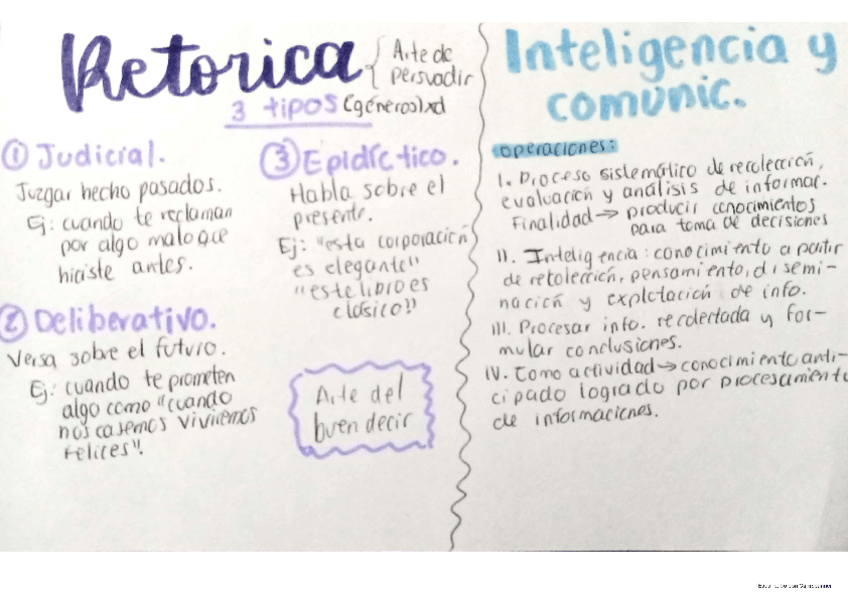 Retorica { Arte de
persuadir
3 tipos (géneros)xd
① Judicial.
Juzgar hecho pasados.
Ej: cuando te reclaman
por algo malo que
hiciste antes.
② Deliberativo.
Versa sobre el futuro.
Ej: cuando te prometen
algo como "cuando
nos casemos viviremos
felices".
③ Epidíctico.
Habla sobre el
presente.
Ej: "esta corporación
es elegante"
"este libro es
clásico"
Arte del
buen decir
Inteligencia y
comunic.
operaciones:
I. Proceso sistemático de recolección,
evaluación y análisis de informac.
Finalidad → producir conocimientos
para toma de decisiones
II. Inteligencia: conocimiento a partir
de retolección, pensamiento, disemi-
nación y explotación de info.
III. Procesar info. recolectada y for-
mular conclusiones.
IV. Como actividad → conocimiento anti-
cipado logrado por procesamiento
de informaciones.